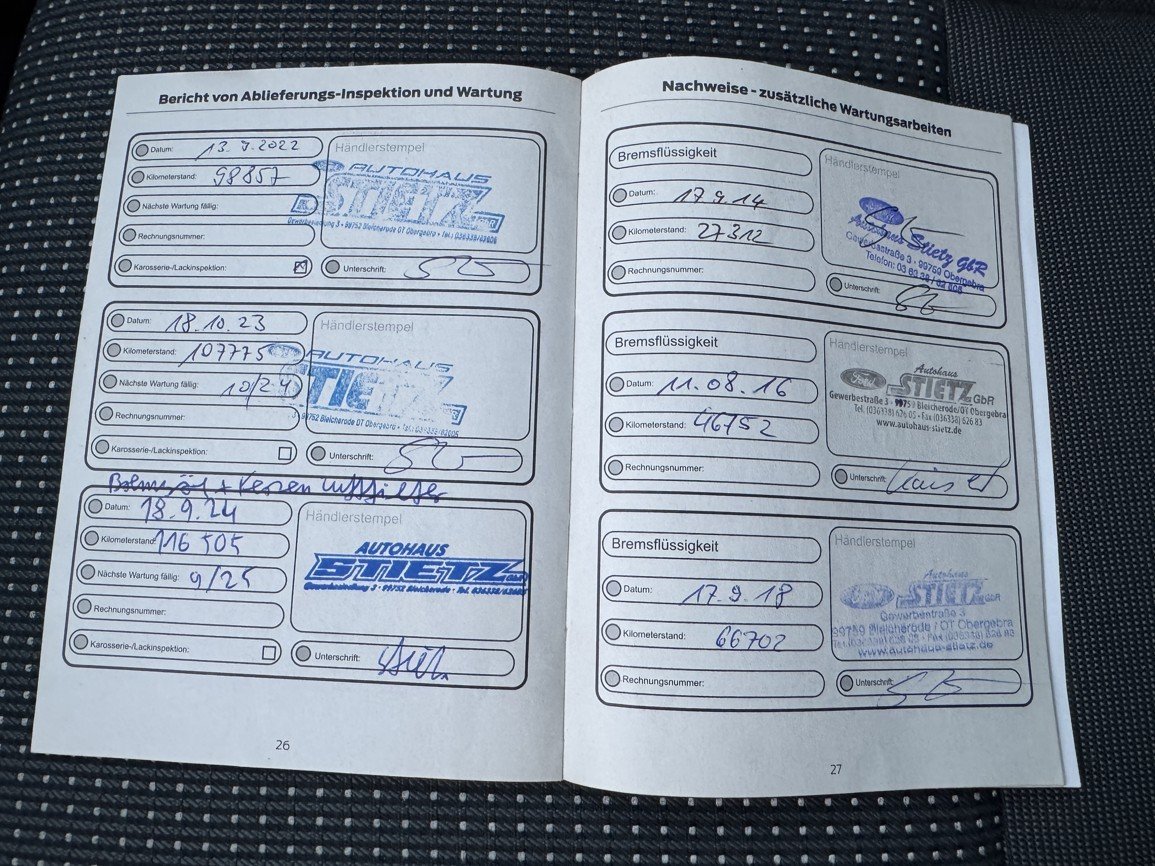 Bericht von Ablieferungs-Inspektion und Wartung
Datum: 13.9.2022
Kilometerstand: 98857
Nächste Wartung fällig:
Rechnungsnummer:
Karosserie-/Lackinspektion:
Händlerstempel
AUTOHAUS
STIETZ
3 • 99752 Bleicherode OT Obergebra • Tel.: 036338/62605
Unterschrift:
Datum: 18.10.23
Kilometerstand: 107775
Nächste Wartung fällig: 10/24
Rechnungsnummer:
Karosserie-/Lackinspektion:
Händlerstempel
AUTOHAUS
STIETZ
99752 Bleicherode OT Obergebra • Tel.: 036338/62605
Unterschrift:
+ Luftfilter
Datum: 18.9.24
Kilometerstand: 116505
Nächste Wartung fällig: 9/25
Rechnungsnummer:
Karosserie-/Lackinspektion:
Händlerstempel
AUTOHAUS
STIETZ GbR
3 • 99752 Bleicherode • Tel. 036338/62605
Unterschrift:
26
Nachweise - zusätzliche Wartungsarbeiten
Bremsflüssigkeit
Datum: 17.9.14
Kilometerstand: 27312
Rechnungsnummer:
Händlerstempel
Ford
Autohaus Stietz GbR
Gewerbestraße 3 • 99759 Obergebra
Telefon: 03 63 38 / 62 605
Unterschrift:
Bremsflüssigkeit
Datum: 11.08.16
Kilometerstand: 46752
Rechnungsnummer:
Händlerstempel
Autohaus
Ford STIETZ GbR
Gewerbestraße 3 • 99759 Bleicherode/OT Obergebra
Tel. (036338) 626 05 • Fax (036338) 626 83
www.autohaus-stietz.de
Unterschrift:
Bremsflüssigkeit
Datum: 17.9.18
Kilometerstand: 66702
Rechnungsnummer:
Händlerstempel
Autohaus
STIETZ GbR
Gewerbestraße 3
99759 Bleicherode / OT Obergebra
Tel. (036338) 626 05 • Fax (036338) 626 83
www.autohaus-stietz.de
Unterschrift:
27